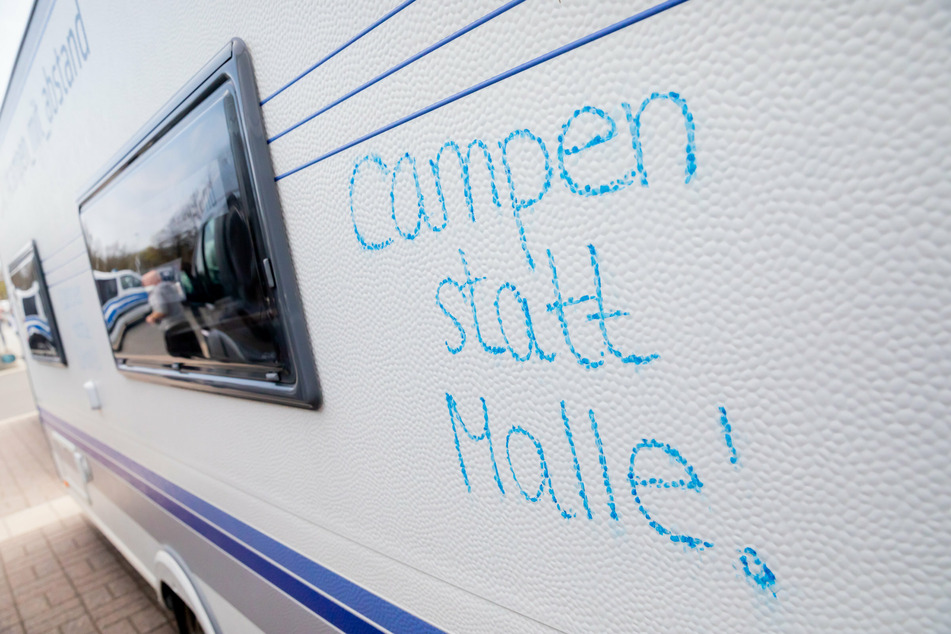 campen mit_abstand
campen
statt
Malle!